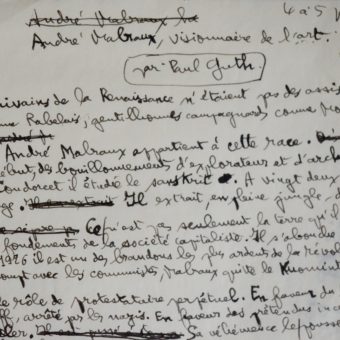 André Malraux la
4 à 5 p
André Malraux, visionnaire de l'art.
par Paul Guth.
crivains de la Renaissance n'étaient pas des assis
me Rabelais, gentilhommes campagnards comme Mo
André Malraux appartient à cette race.
but, des bouillonnements d'explorateur et d'arch
Condorcet il étudie le sanskrit. A vingt deux
ge. Il extrait, en pleine jungle, d
Ce n'est pas seulement la terre qu'il
fondements de la société capitaliste. Il s'abouche
1926 il est un des brandons les plus ardents de la révol
ompt avec les communistes, Malraux quitte le Kuomint
le rôle de protestataire perpétuel. En faveur du
ff, arrêté par les nazis. En faveur des prétendus inc
ler. Sa véhémence le pousse